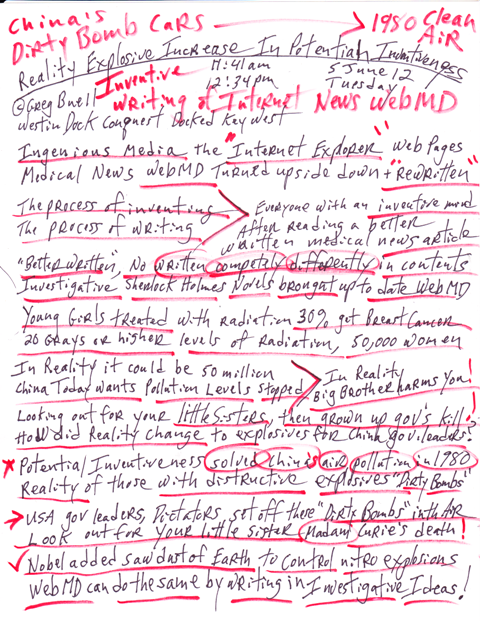 China's
Dirty Bomb Cars → 1980 Clean Air
Reality Explosive Increase In Potential Inventiveness
Inventive 11:41am 5 June 12
@Greg Buell 12:34pm Tuesday
Writing of Internet News WebMD
Westin Dock Conquest Docked Key West
Ingenious Media the "Internet Explorer" Web Pages
Medical News WebMD Turned upside down + "Rewritten"
The process of inventing Everyone with an inventive mind
The process of writing After reading a better
written medical news article
"Better written", No written competely differently in contents
Investigative Sherlock Holmes Novels brought up to date WebMD
Young Girls treated with radiation 30% got Breast Cancer
20 Grays or higher levels of radiation, 50,000 women
In Reality it could be 50 million
China Today wants Pollution Levels stopped In Reality
Big Brother harms you!
Looking out for your little sisters, then grown up gov's kill!
How did Reality change to explosives for China gov. leaders?
* Potential Inventiveness solved China's air pollution in 1980
Reality of those with distructive explosives "Dirty Bombs"
→ USA gov leaders, Dictators, set off these "Dirty Bombs" in the Air
Look out for your little sister Madam Curie's death!
✓ Nobel added sawdust of Earth to control nitro explosions
WebMD can do the same by writing in Investigative Ideas!